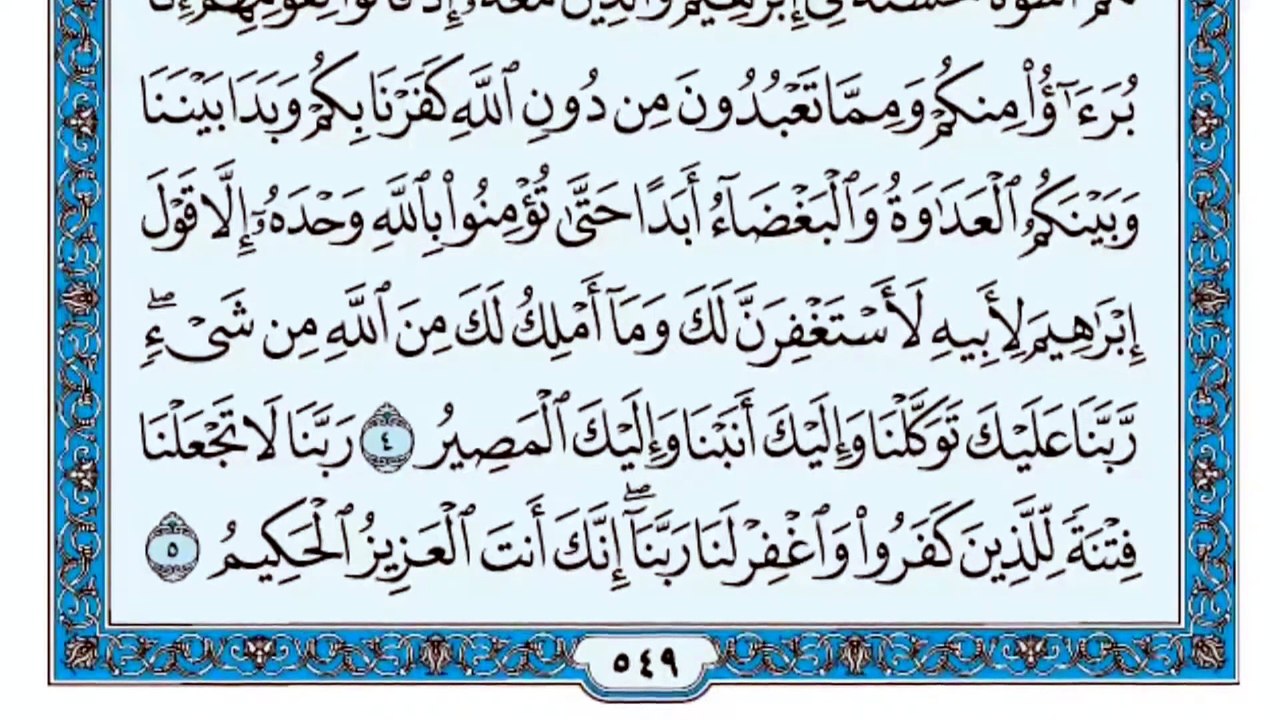 لكم أسوة حسنة في إبرهيم والذين معه إذ قالوا لقومهم إنا
بُرَءَٰٓؤُاْ مِنكُمْ وَمِمَّا تَعْبُدُونَ مِن دُونِ ٱللَّهِ كَفَرْنَا بِكُمْ وَبَدَا بَيْنَنَا
وَبَيْنَكُمُ ٱلْعَدَٰوَةُ وَٱلْبَغْضَآءُ أَبَدًا حَتَّىٰ تُؤْمِنُواْ بِٱللَّهِ وَحْدَهُۥٓ إِلَّا قَوْلَ
إِبْرَٰهِيمَ لِأَبِيهِ لَأَسْتَغْفِرَنَّ لَكَ وَمَآ أَمْلِكُ لَكَ مِنَ ٱللَّهِ مِن شَىْءٍۖ
رَّبَّنَا عَلَيْكَ تَوَكَّلْنَا وَإِلَيْكَ أَنَبْنَا وَإِلَيْكَ ٱلْمَصِيرُ ٤ رَبَّنَا لَا تَجْعَلْنَا
فِتْنَةً لِّلَّذِينَ كَفَرُواْ وَٱغْفِرْ لَنَا رَبَّنَآۖ إِنَّكَ أَنتَ ٱلْعَزِيزُ ٱلْحَكِيمُ ٥
٥٤٩